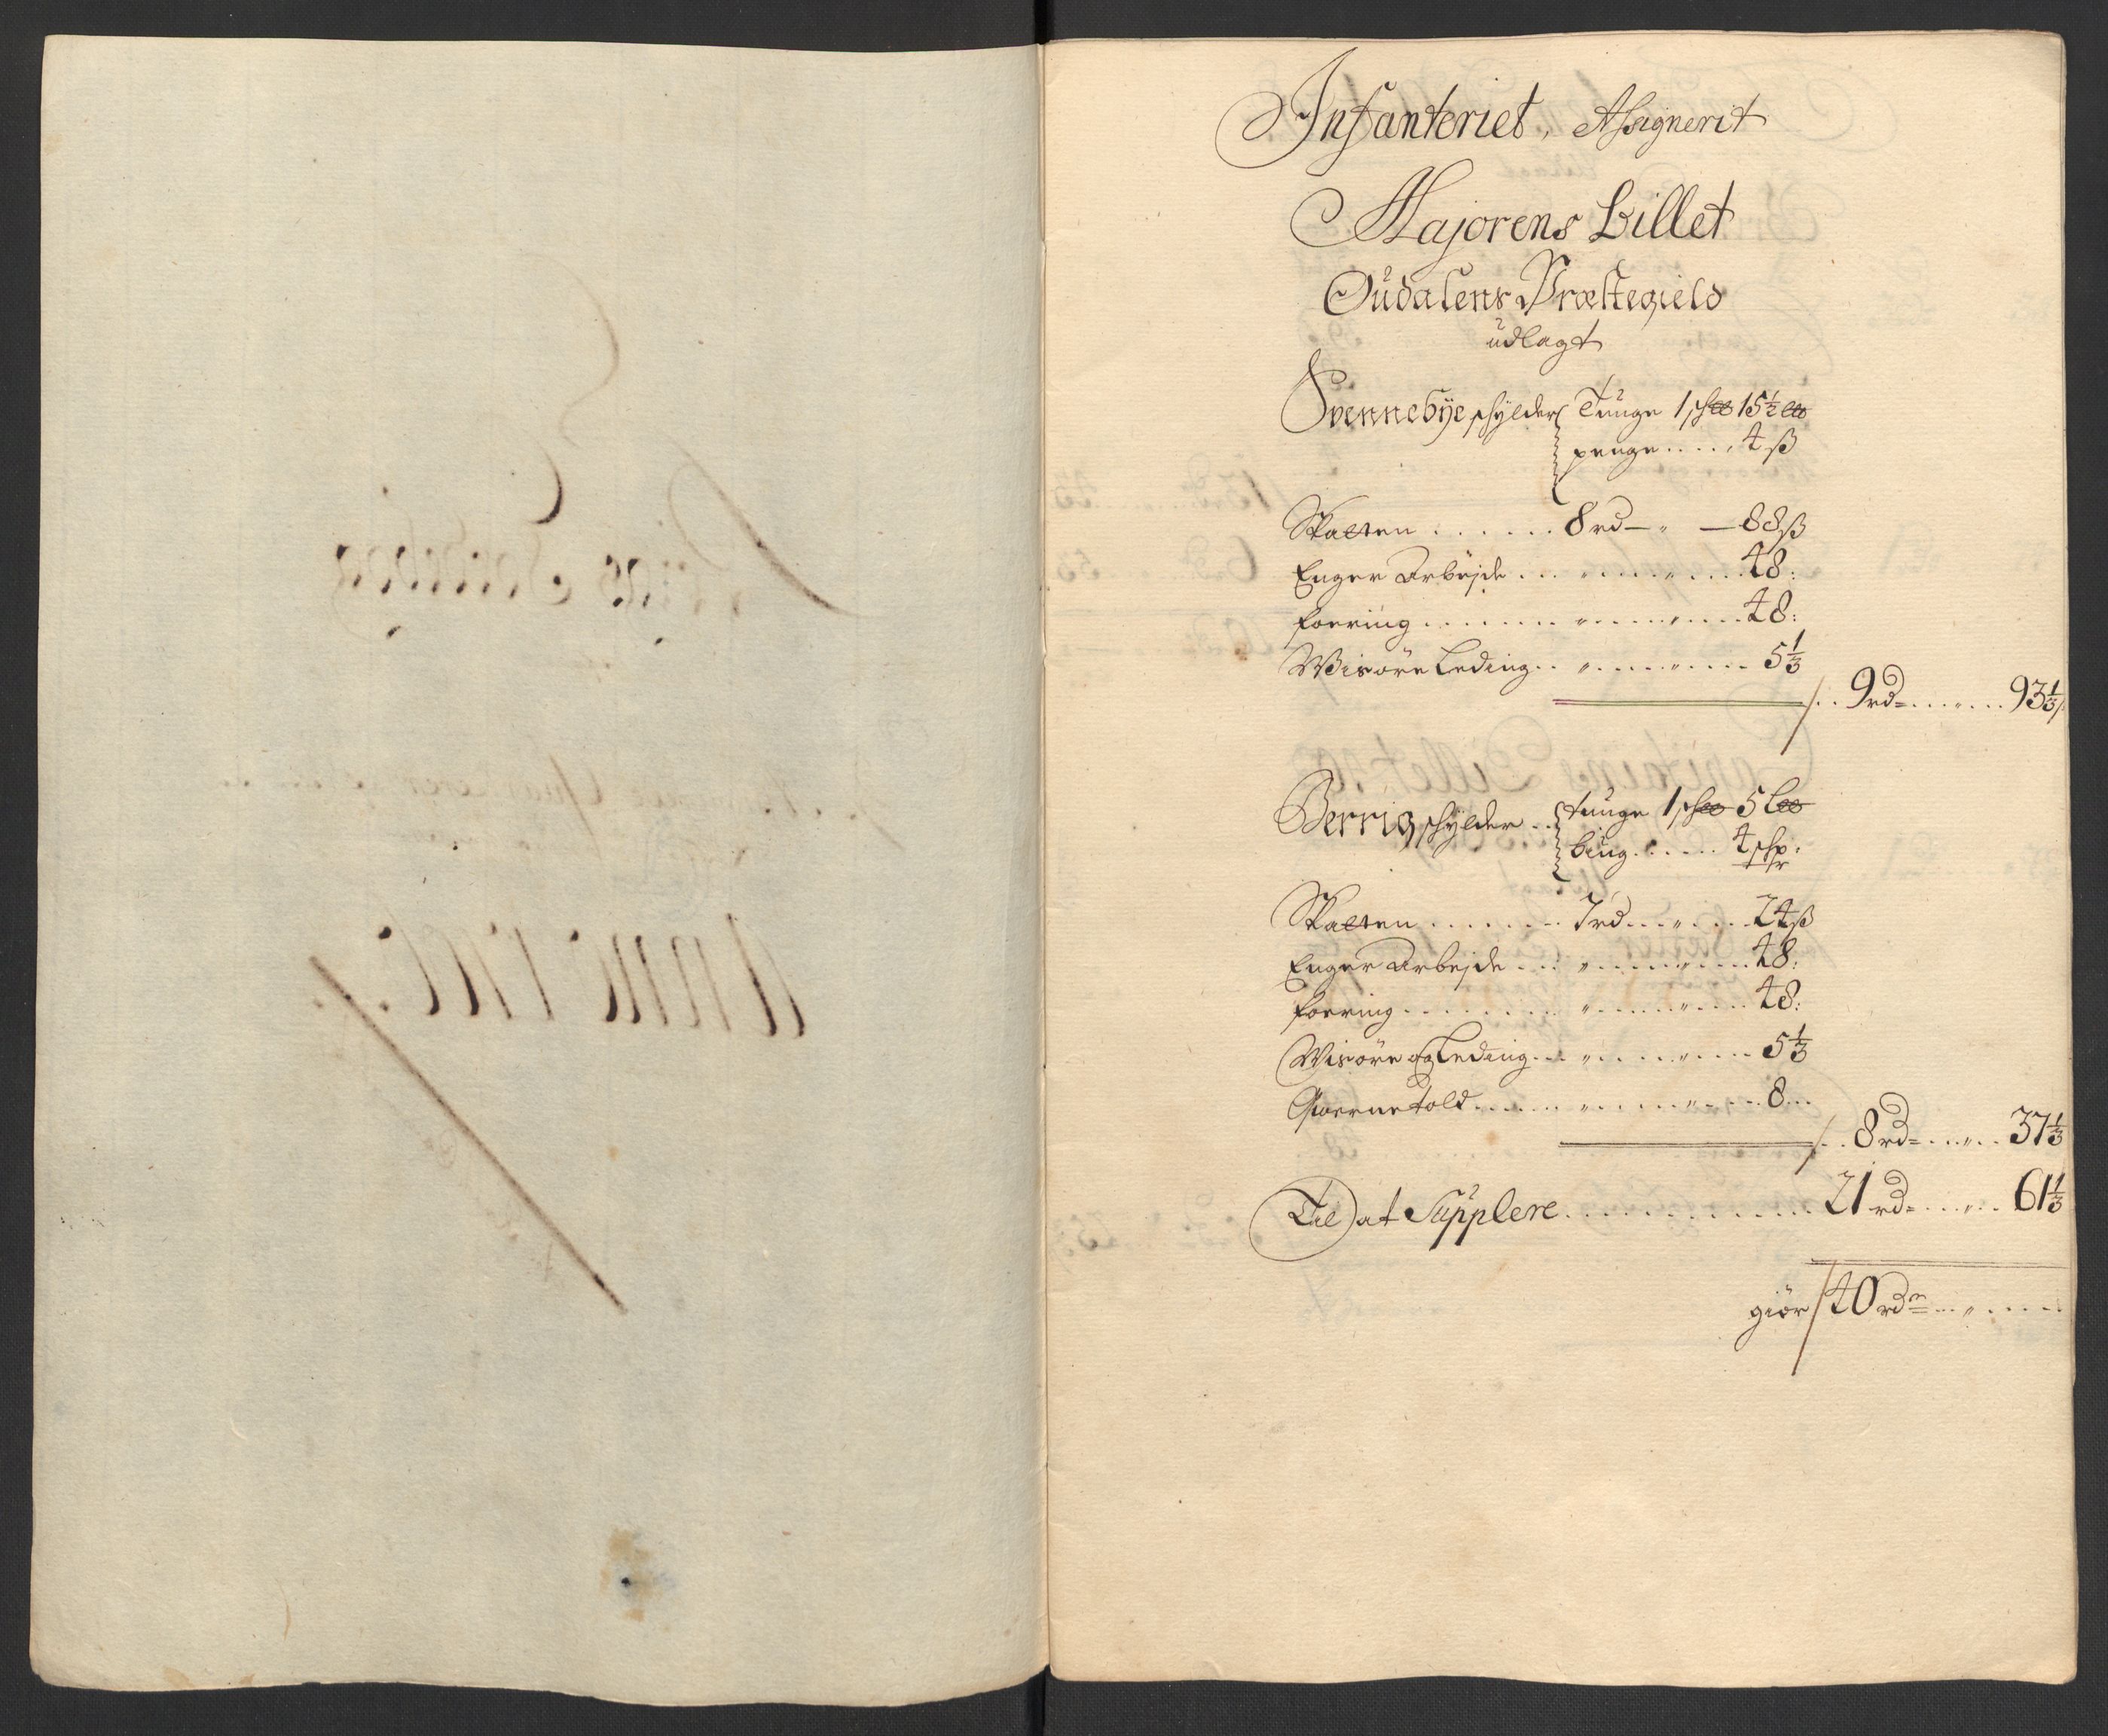 Infanteriet, Assignerit
Majorens Billet
Oudalens Præstegield
udlagt
Svennebÿe schÿlder Tunge 1 sh℔ 15½ l℔
penge . . . . . 4 ß
Skatten . . . . . . 8 rd — „ — 88 ß
Enger Arbejde . . . „ . . . . „ . . . . 48:
Foering . . . . . . . . „ . . . . „ . . . . 48:
Wisøre Leding . . „ . . . . „ . . . . 5⅓
/. . 9 rd= . . . „ . . . 93⅓
Berrig schÿlder . . tunge 1 sh℔ 5 l℔
bÿg . . . . . 4 shp:
Skatten . . . . . . . 7 rd . . . „ . . . 24 ß
Enger Arbejde . . . „ . . . . „ . . . . 48:
Foering . . . . . . . . „ . . . . „ . . . . 48:
Wisøre og Leding . . . „ . . . . „ . . . . 5⅓
Qvernetold . . . . . „ . . . . „ . . . . 8 . . .
/. . 8 rd= . . . „ . . 37⅓
Til at Supplere . . . . . . . . . . . . 21 rd= . . . „ . . 61⅓
giør / 40 rdr . . . „ . . . .